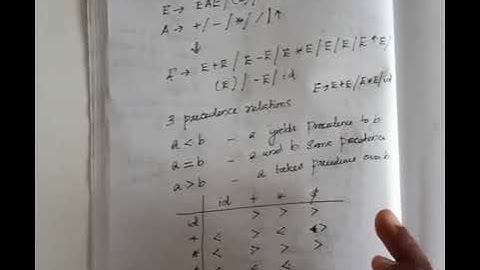 E → EAE / (
A → + / - / * / / ↑
↓
E → E+E / E-E / E*E / E/E / E↑E /
(E) / -E / id
E→E+E / E*E / id
3 precedence relations
a < b - a yields precedence to b
a = b - a and b same precedence
a > b - a takes precedence over b
id + * $
id > > >
+ < > < >
* < > > >
< < <